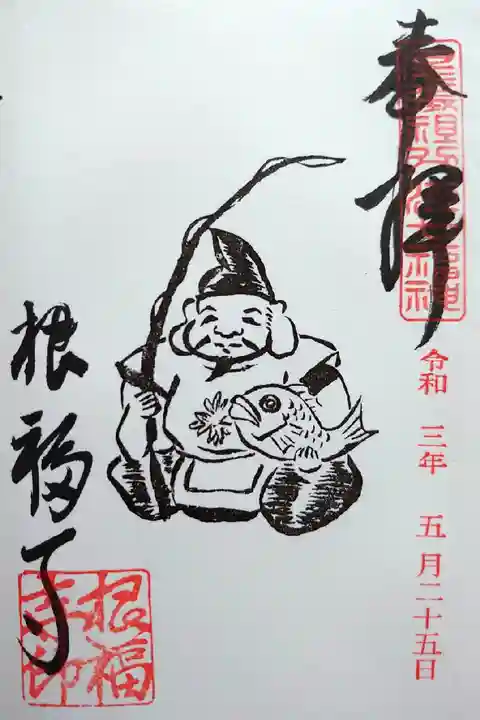 奉拝
令和 三年 五月二十五日
根福寺
根福
寺印